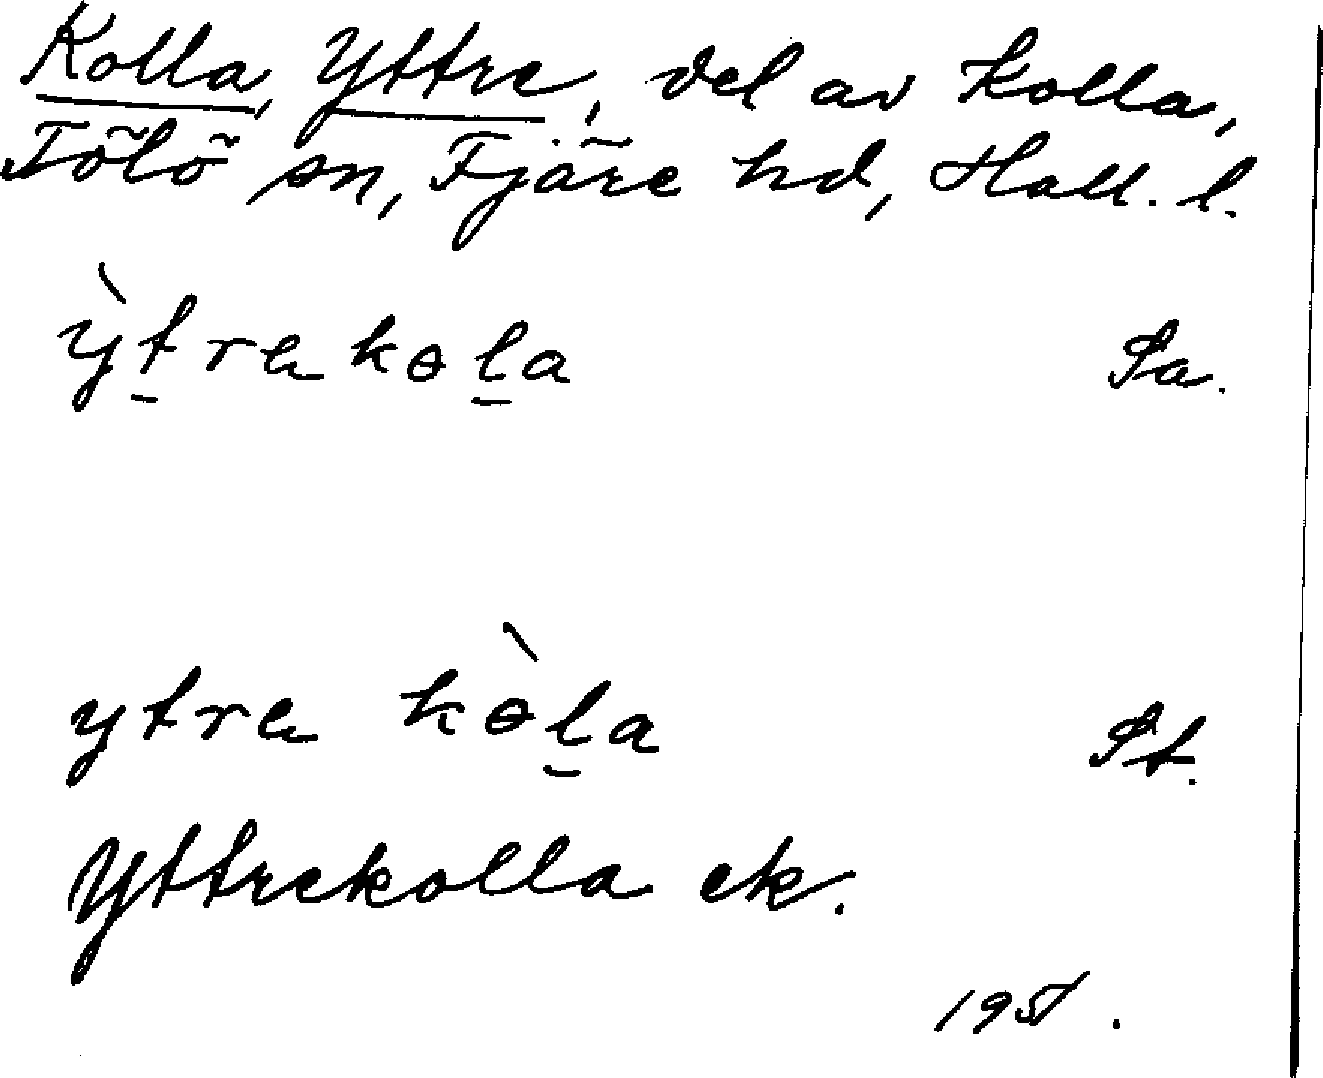 Kolla, Yttre, del av Kolla,
Tölö sn, Fjäre hd, Hall. l.
ỳt̠rekɵl̠a Sa.
ytre kɵ̀l̠a St.
Yttrekolla ek.